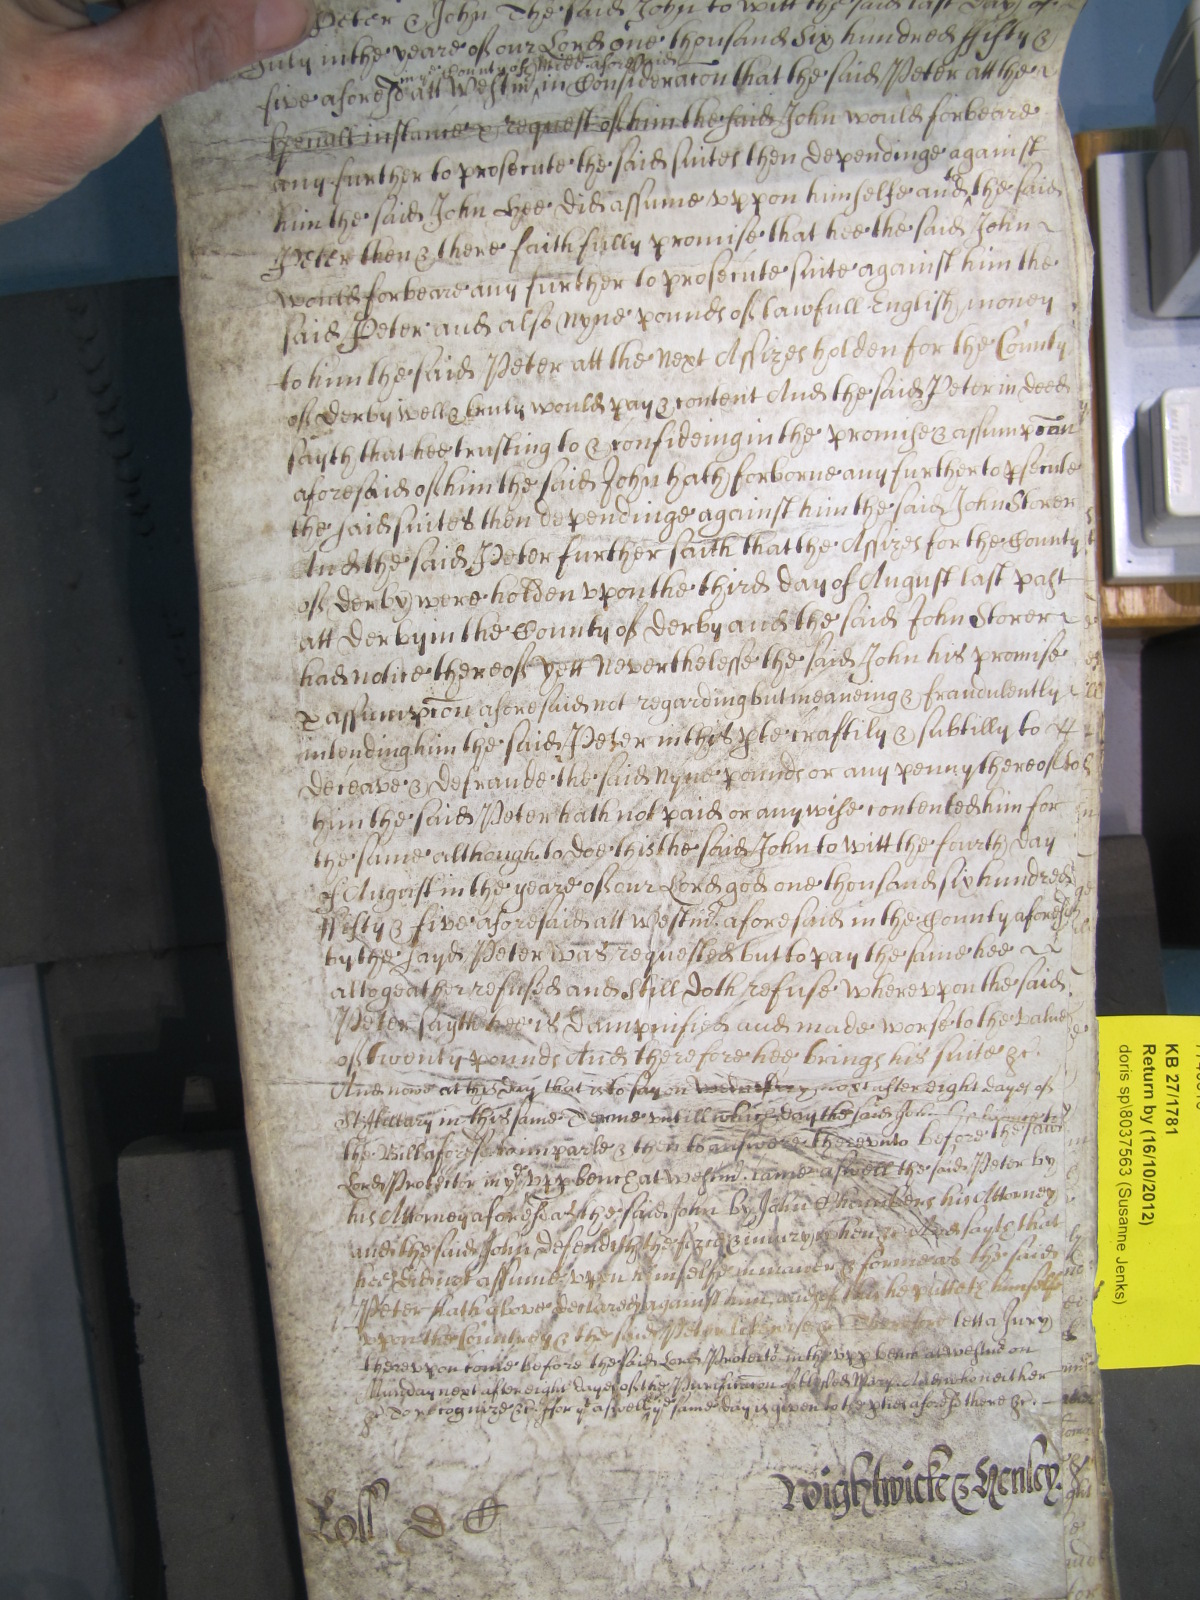 Peter & John The said John to witt the said last day of
July in the yeare of our Lord one thousand six hundred ffifty &
in ye County of Midd aforesaid
five aforesd att Westmr in Consideracon that the said Peter att the
speciall instance & request of him the said John would forbeare
any further to prosecute the said suites then dependinge against
him the said John hee did assume uppon himselfe and to the said
Peter then & there faithfully promise that hee the said John
would forbeare any further to prosecute suite against him the
said Peter and also Nyne pounds of lawfull English money
to him the said Peter att the next Assizes holden for the County
of Derby well & truly would pay & content And the said Peter in deed
sayth that hee trusting to & confideing in the promise & assumpcon
aforesaid of him the said John hath forborne any further to psecute
the said suites then dependinge against him the said John Storer
And the said Peter further saith that the Assizes for the County
of Derby were holden upon the third day of August last past
att Derby in the County of Derby and the said John Storer
had notice thereof yett Neverthelesse the said John his promise
& assumpcon aforesaid not regarding but meaneing & fraudulently
intending him the said Peter in this pte craftily & subtilly to
deceave & defraude the said Nyne pounds or any penny thereof to
him the said Peter hath not paid or any wise contented him for
the same although to doe this the said John to witt the fourth day
of August in the yeare of our Lord god one thousand six hundred
ffifty & five aforesaid att Westmr aforesaid in the County aforesd
by the sayd Peter was requested but to pay the same hee
altogeather refused and still doth refuse whereupon the said
Peter sayth hee is dampnified and made worse to the value
of twenty pounds And therefore hee brings his suite &c.
And now at this day that is to say on next after eight dayes of
St Hillary in this same Terme untill which day the said John
the Bill aforesd to imparle & then to answere thereunto before the said
Lord Protector in ye upp bench at Westmr came aswell the said Peter by
his Attorney aforesd as the said John by John Chambers his Attorney
and the said John defendeth the force & iniury when &c And sayth that
hee did not assume upon himselfe in manner & forme as the said
Peter hath above declared against him and of this he putteth himselfe
upon the Country & the said Peter likewise &c Therefore lett a Jury
thereupon come before the said Lord Protector in the upp bench at Westmr on
Munday next after eight dayes of the Purificacon of blessed Mary And who neither
&c To recognize &c ffor yt aswell &c ye same day is given to the pties aforesd there &c.
Wightwicke & Henley.
Roll
KB 27/1781
Return by (16/10/2012)
doris sp\8037563 (Susanne Jenks)